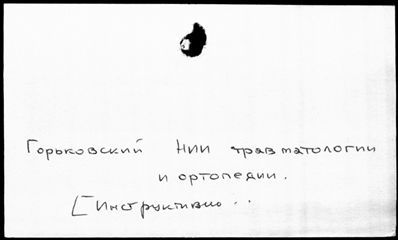 Горьковский НИИ травматологии
и ортопедии.
[Инструктивно..